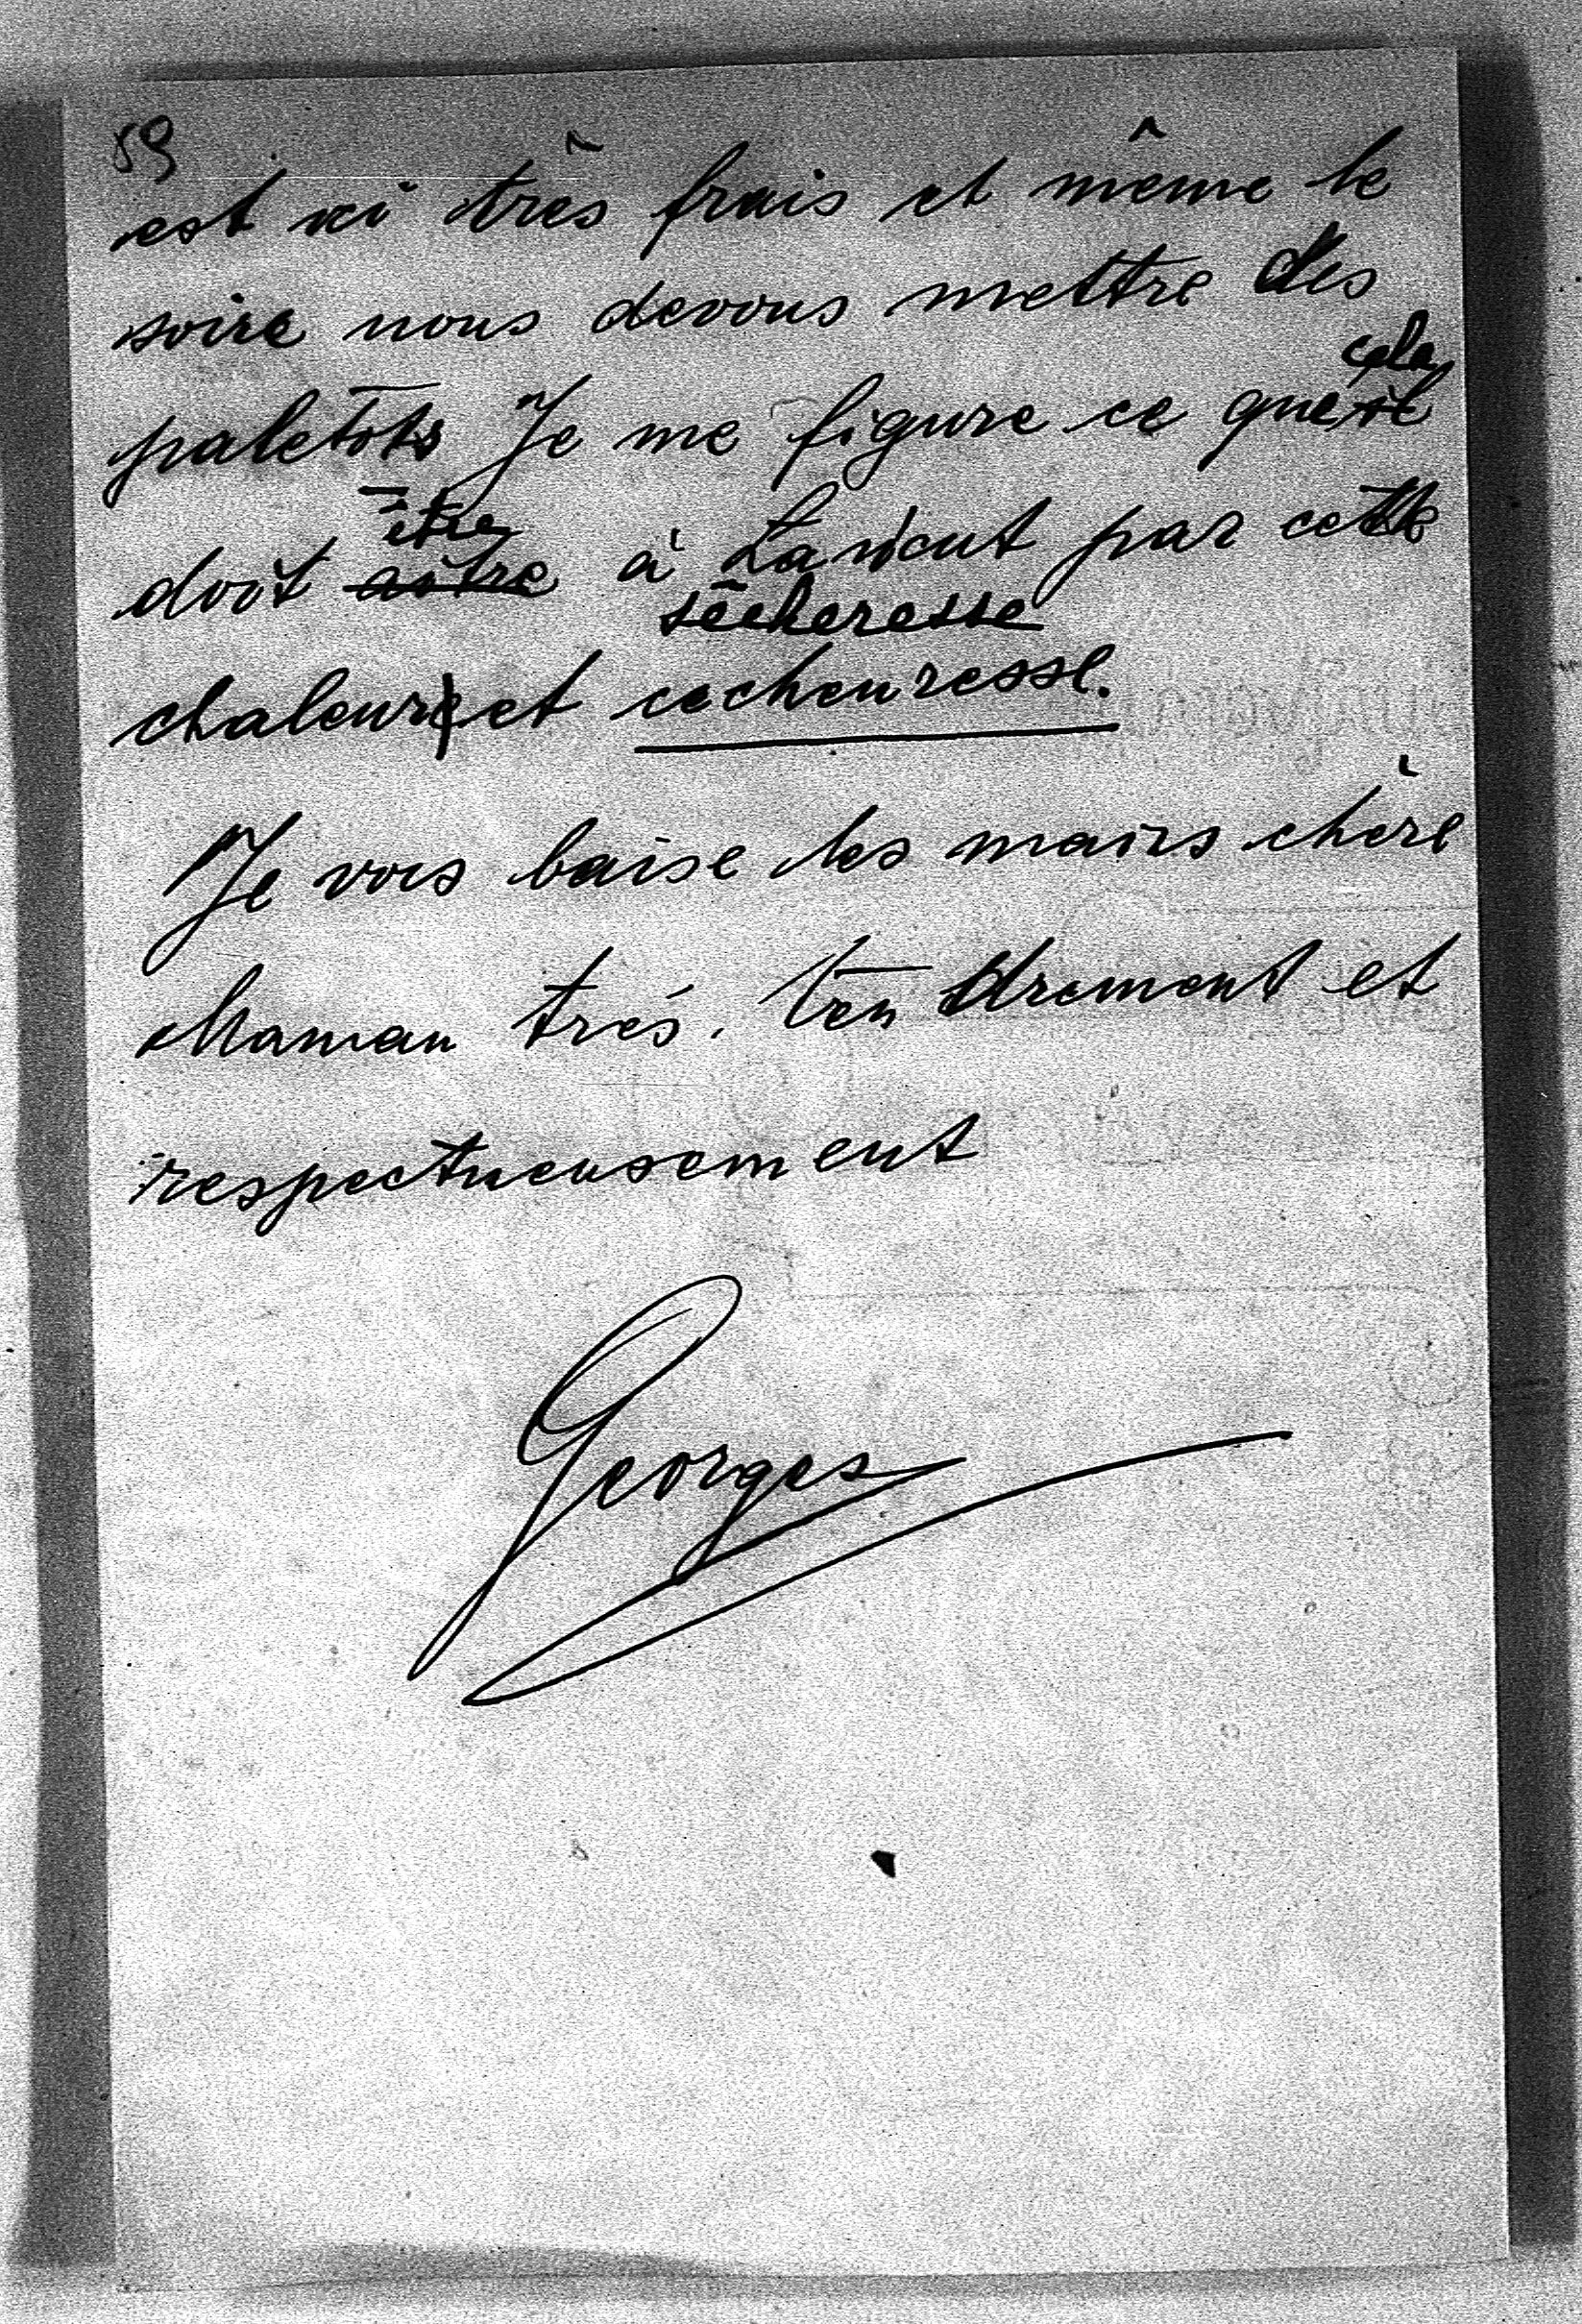 59
est ici très frais et même le
soire nous devons mettre des
cela
paletots Je me figure ce que il
être
doit aître à Lancut par cette
sécheresse
chaleure et cecheuresse.
Je vous baise les mains chère
Maman trés. tendrement et
respectueusement
Georges